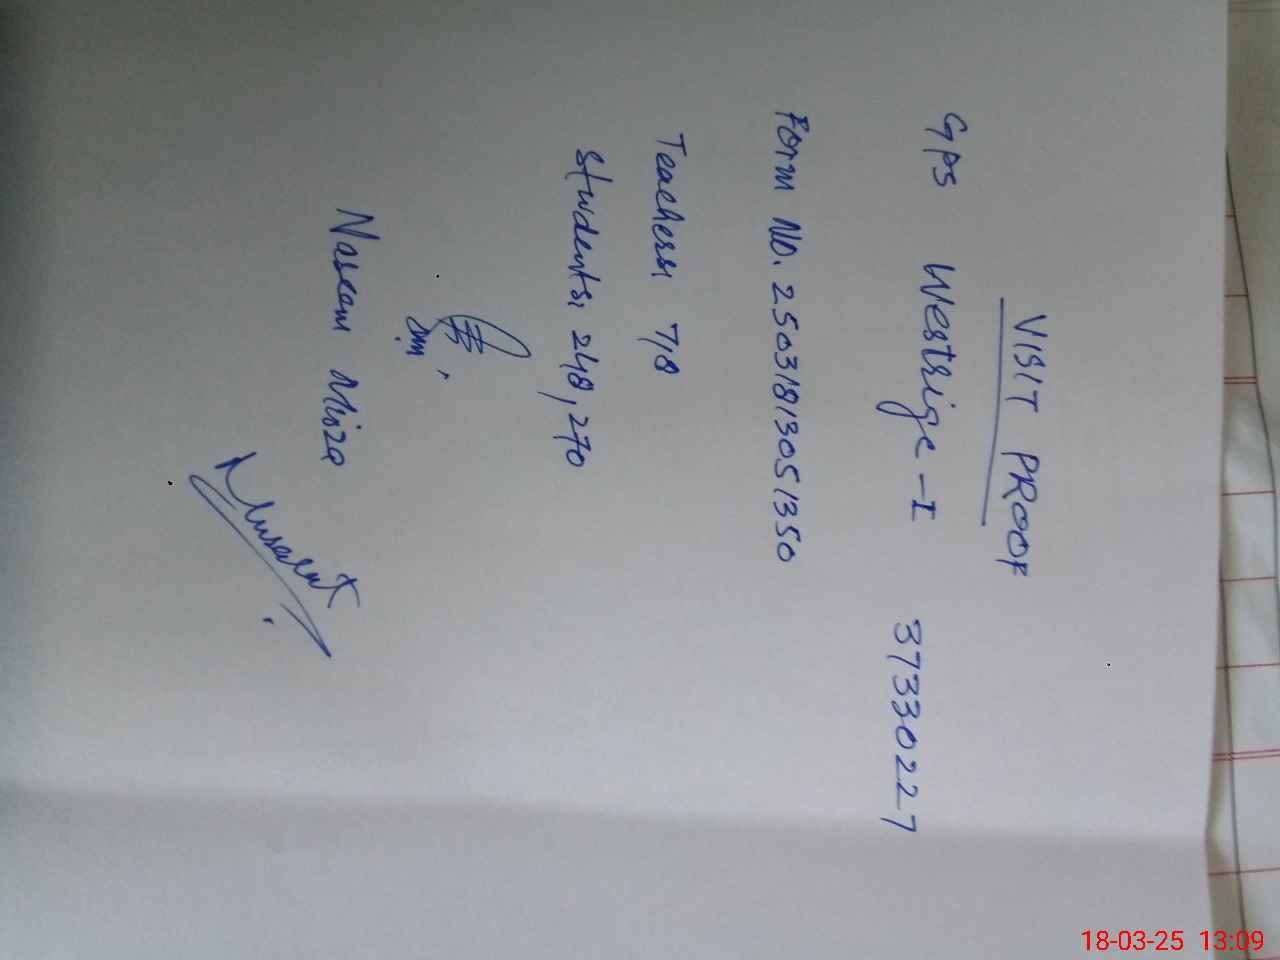 VISIT PROOF
GPS Westrige-I 37330227
Form No. 25031813051350
Teachers: 7/8
Students: 248, 270
Naseem Mirza
18-03-25 13:09